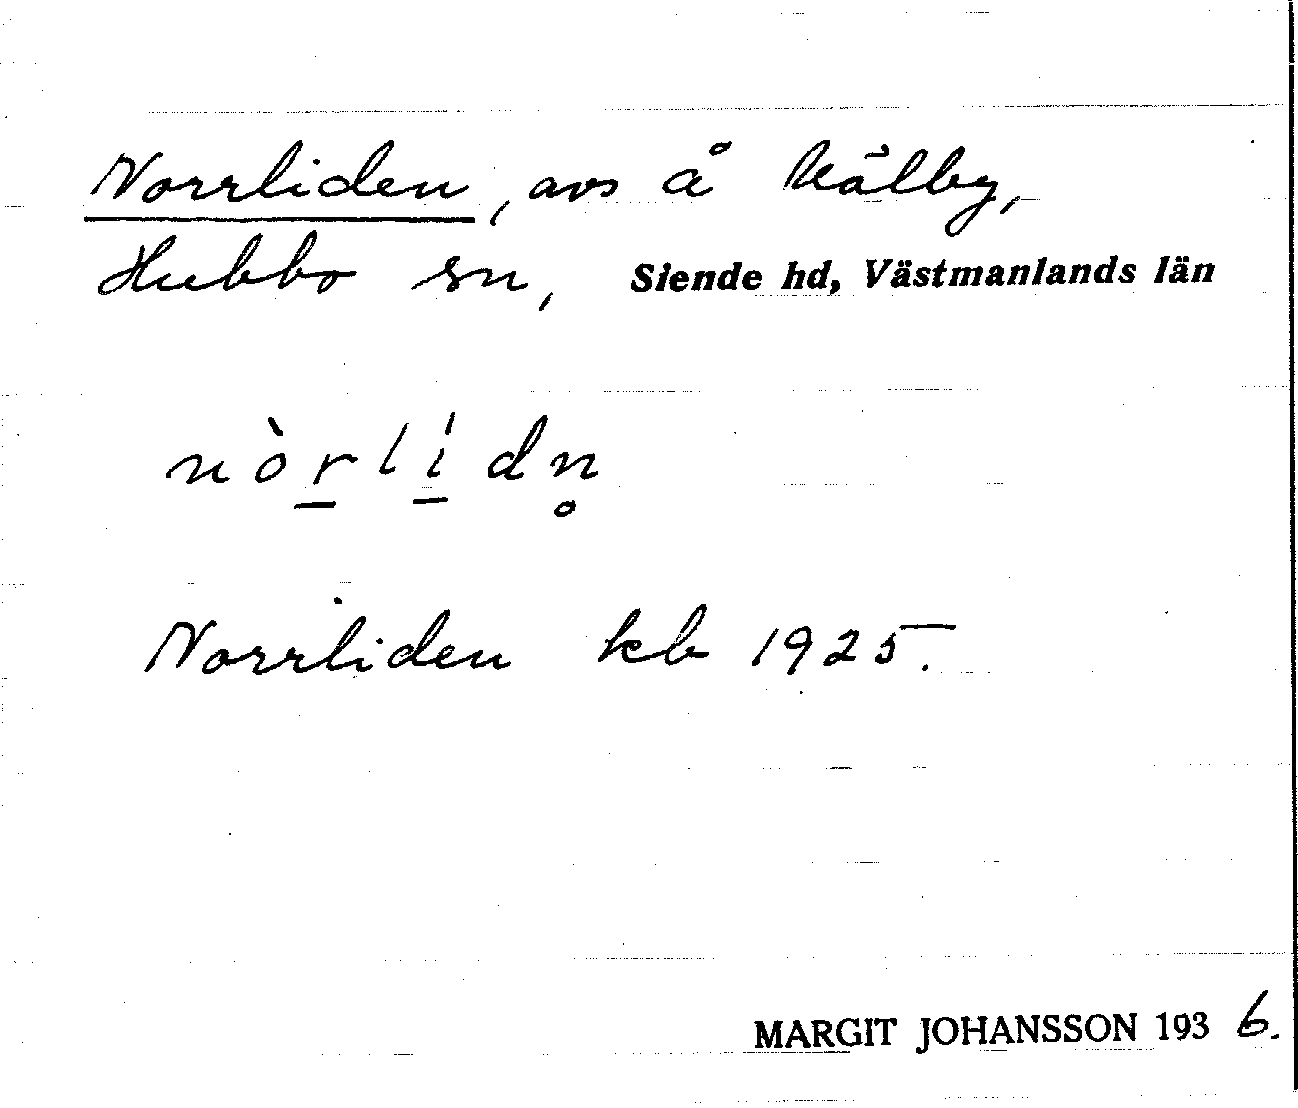 Norrliden, avs å Kålby,
Hubbo sn, Siende hd, Västmanlands län
nòrlídn̥
Norrliden kb 1925.
MARGIT JOHANSSON 1936.